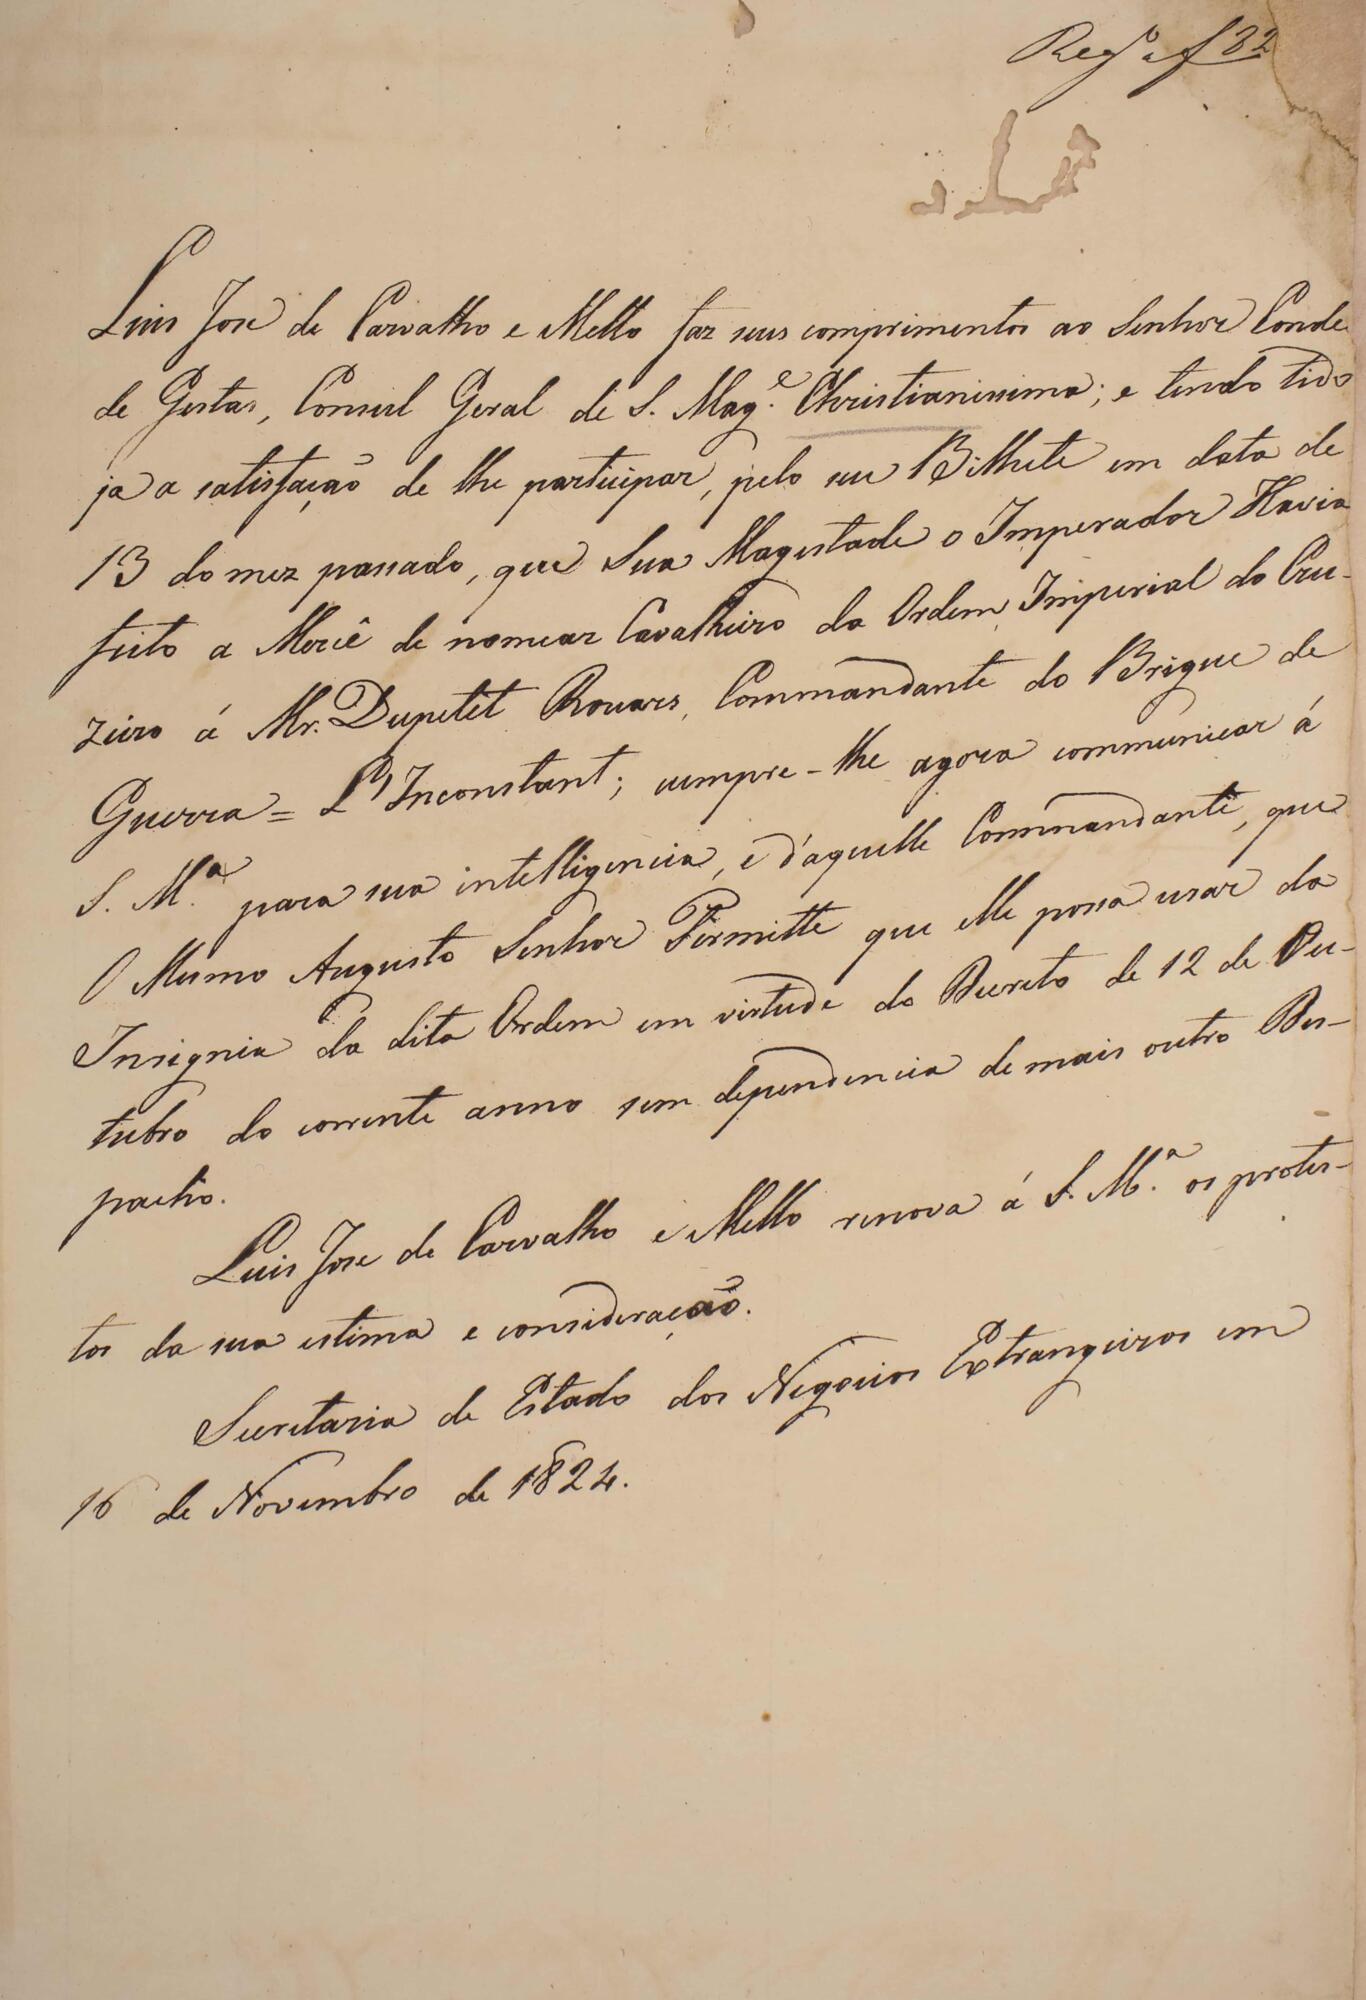 Reg.º a f 82
Luis Jose de Carvalho e Mello faz seus comprimentos ao Senhor Conde
de Gestas, Consul Geral de S. Mag.e Christianissima; e tendo tido
ja a satisfação de lhe participar, pelo seu Bilhete em data de
13 do mez passado, que Sua Magestade o Imperador Havia
feito a Mercê de nomear Cavalheiro da Ordem Imperial do Cru-
zeiro á Mr. Dupetit Rouars, Commandante do Brigue de
Guerra = L'Inconstant; cumpre-lhe agora communicar á
S. M.a para sua intelligencia, e d'aquelle Commandante, que
O Mesmo Augusto Senhor Permitte que elle possa usar da
Insignia da dita Ordem em virtude do Decreto de 12 de Ou-
tubro do corrente anno sem dependencia de mais outro Des-
pacho.
Luis Jose de Carvalho e Mello renova á S. M.a os protes-
tos da sua estima e consideração.
Secretaria de Estado dos Negocios Extrangeiros em
16 de Novembro de 1824.